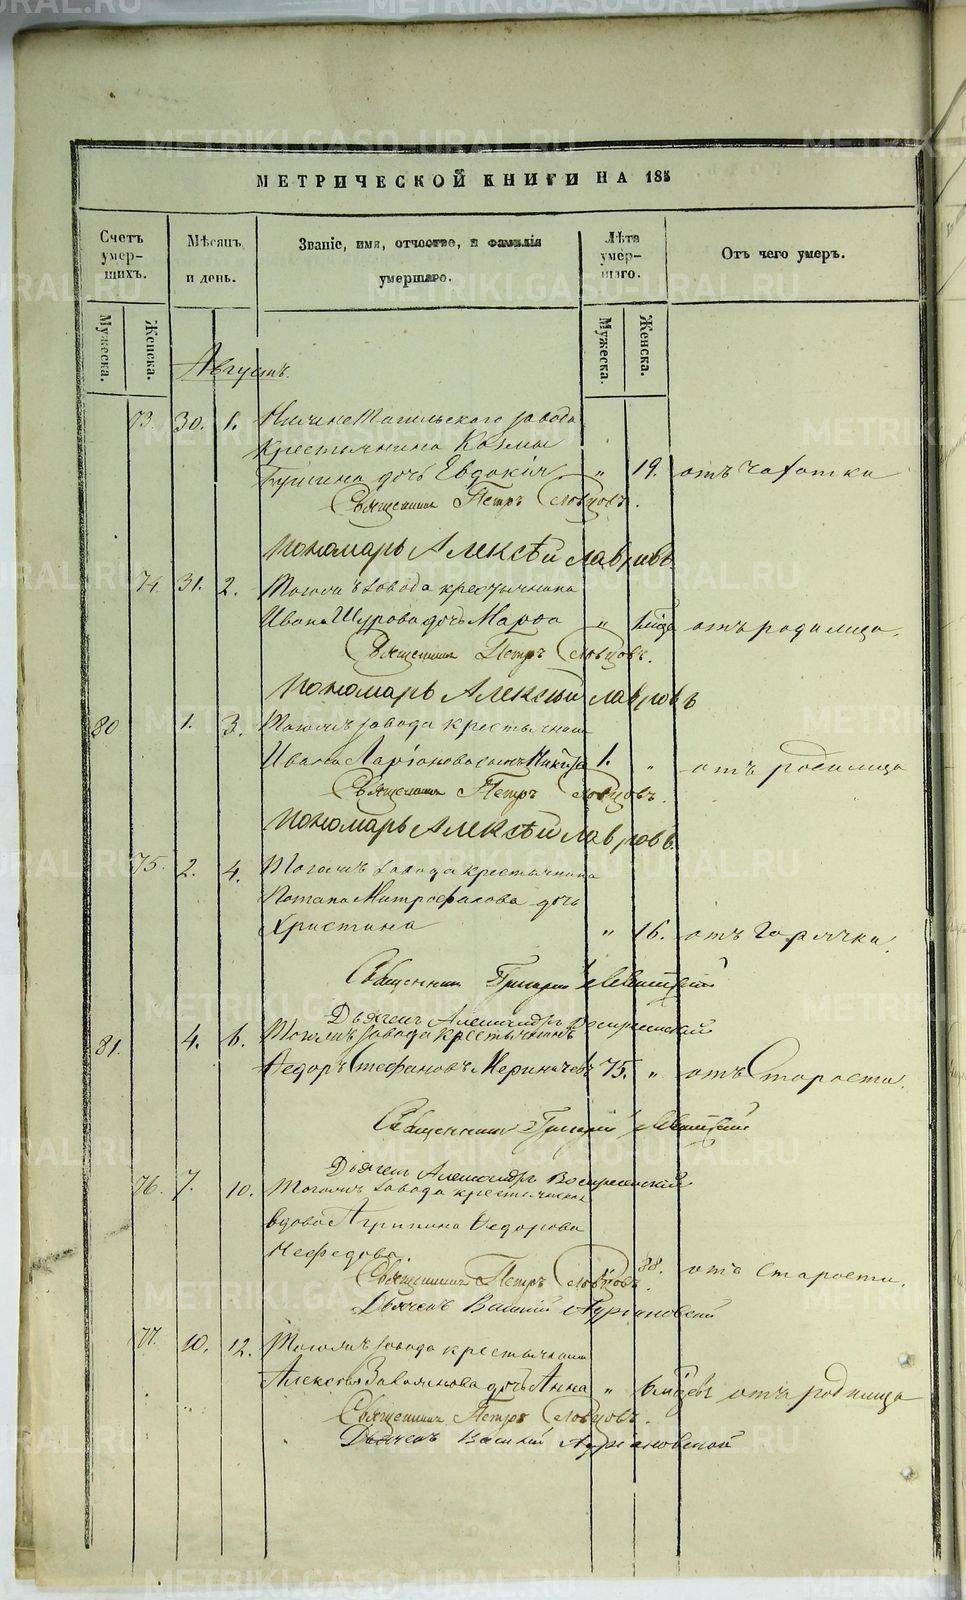 МЕТРИЧЕСКОЙ КНИГИ НА 185
Счетъ умер-шихъ.
Мужеска.
Женска.
Мѣсяцъ и день.
Званіе, имя, отчество, и фамилія умершаго.
Лѣта умер-шаго.
Мужеска.
Женска.
Отъ чего умеръ.
Августъ.
73. 30. 1. Нижне Тагильскаго завода
крестьянина Козмы
дочь Евдокія „ 19. отъ чахотки
Священникъ Петръ Словцовъ.
Пономарь Алексѣй Лавровъ
74. 31. 2. Тогожъ завода крестьянина
Ивана Шурова дочь Марѳа „ отъ родимца.
Священникъ Петръ Словцовъ.
Пономарь Алексѣй Лавровъ
80 1. 3. Тогожъ завода крестьянина
Ивана Ларіонова сынъ Никита 1. „ отъ родимца
Священникъ Петръ Словцовъ.
Пономарь Алексѣй Лавровъ
75. 2. 4. Тогожъ завода крестьянина
Потапа Митрофанова дочь
Христина „ 16. отъ горячки.
Священникъ Григорій Левитскій
Дьячекъ Александръ Воскресенской
81. 4. 6. Тогожъ завода крестьянинъ
Ѳедоръ Стефановъ 75. „ отъ Старости.
Священникъ Григорій Левитскій
Дьячекъ Александръ Воскресенской
76. 7. 10. Тогожъ завода крестьянская
вдова Агрипина Ѳедорова
Нефедова. „ 88. отъ старости.
Священникъ Петръ Словцовъ.
Дьячекъ Василій
77. 10. 12. Тогожъ завода крестьянина
Алексѣя дочь Анна „ 6 отъ родимца
Священникъ Петръ Словцовъ.
Дьячекъ Василій
METRIKI.GASO-URAL.RU